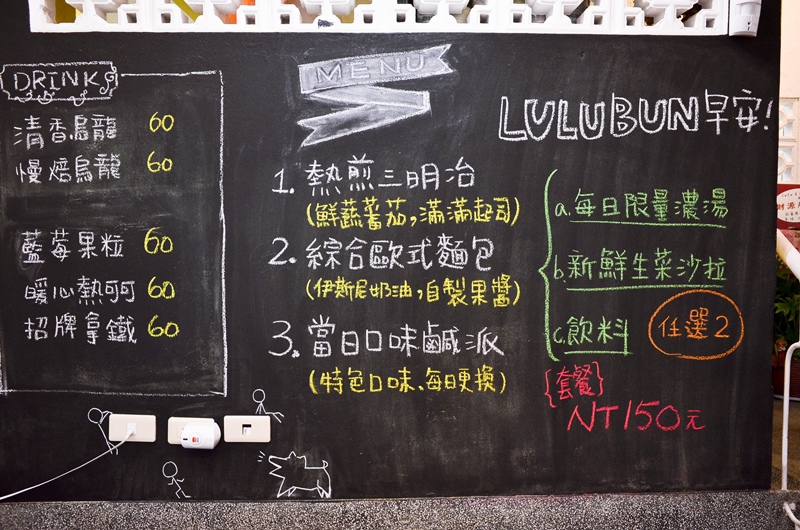 DRINK
清香烏龍 60
慢焙烏龍 60
藍莓果粒 60
暖心熱可可 60
招牌拿鐵 60
MENU
1. 熱煎三明冶
(鮮蔬蕃茄,滿滿起司)
2. 綜合歐式麵包
(伊斯尼奶油,自製果醬)
3. 當日口味鹹派
(特色口味、每日更換)
LULUBUN早安!
a.每日限量濃湯
b.新鮮生菜沙拉
c.飲料
任選2
{套餐}
NT150元